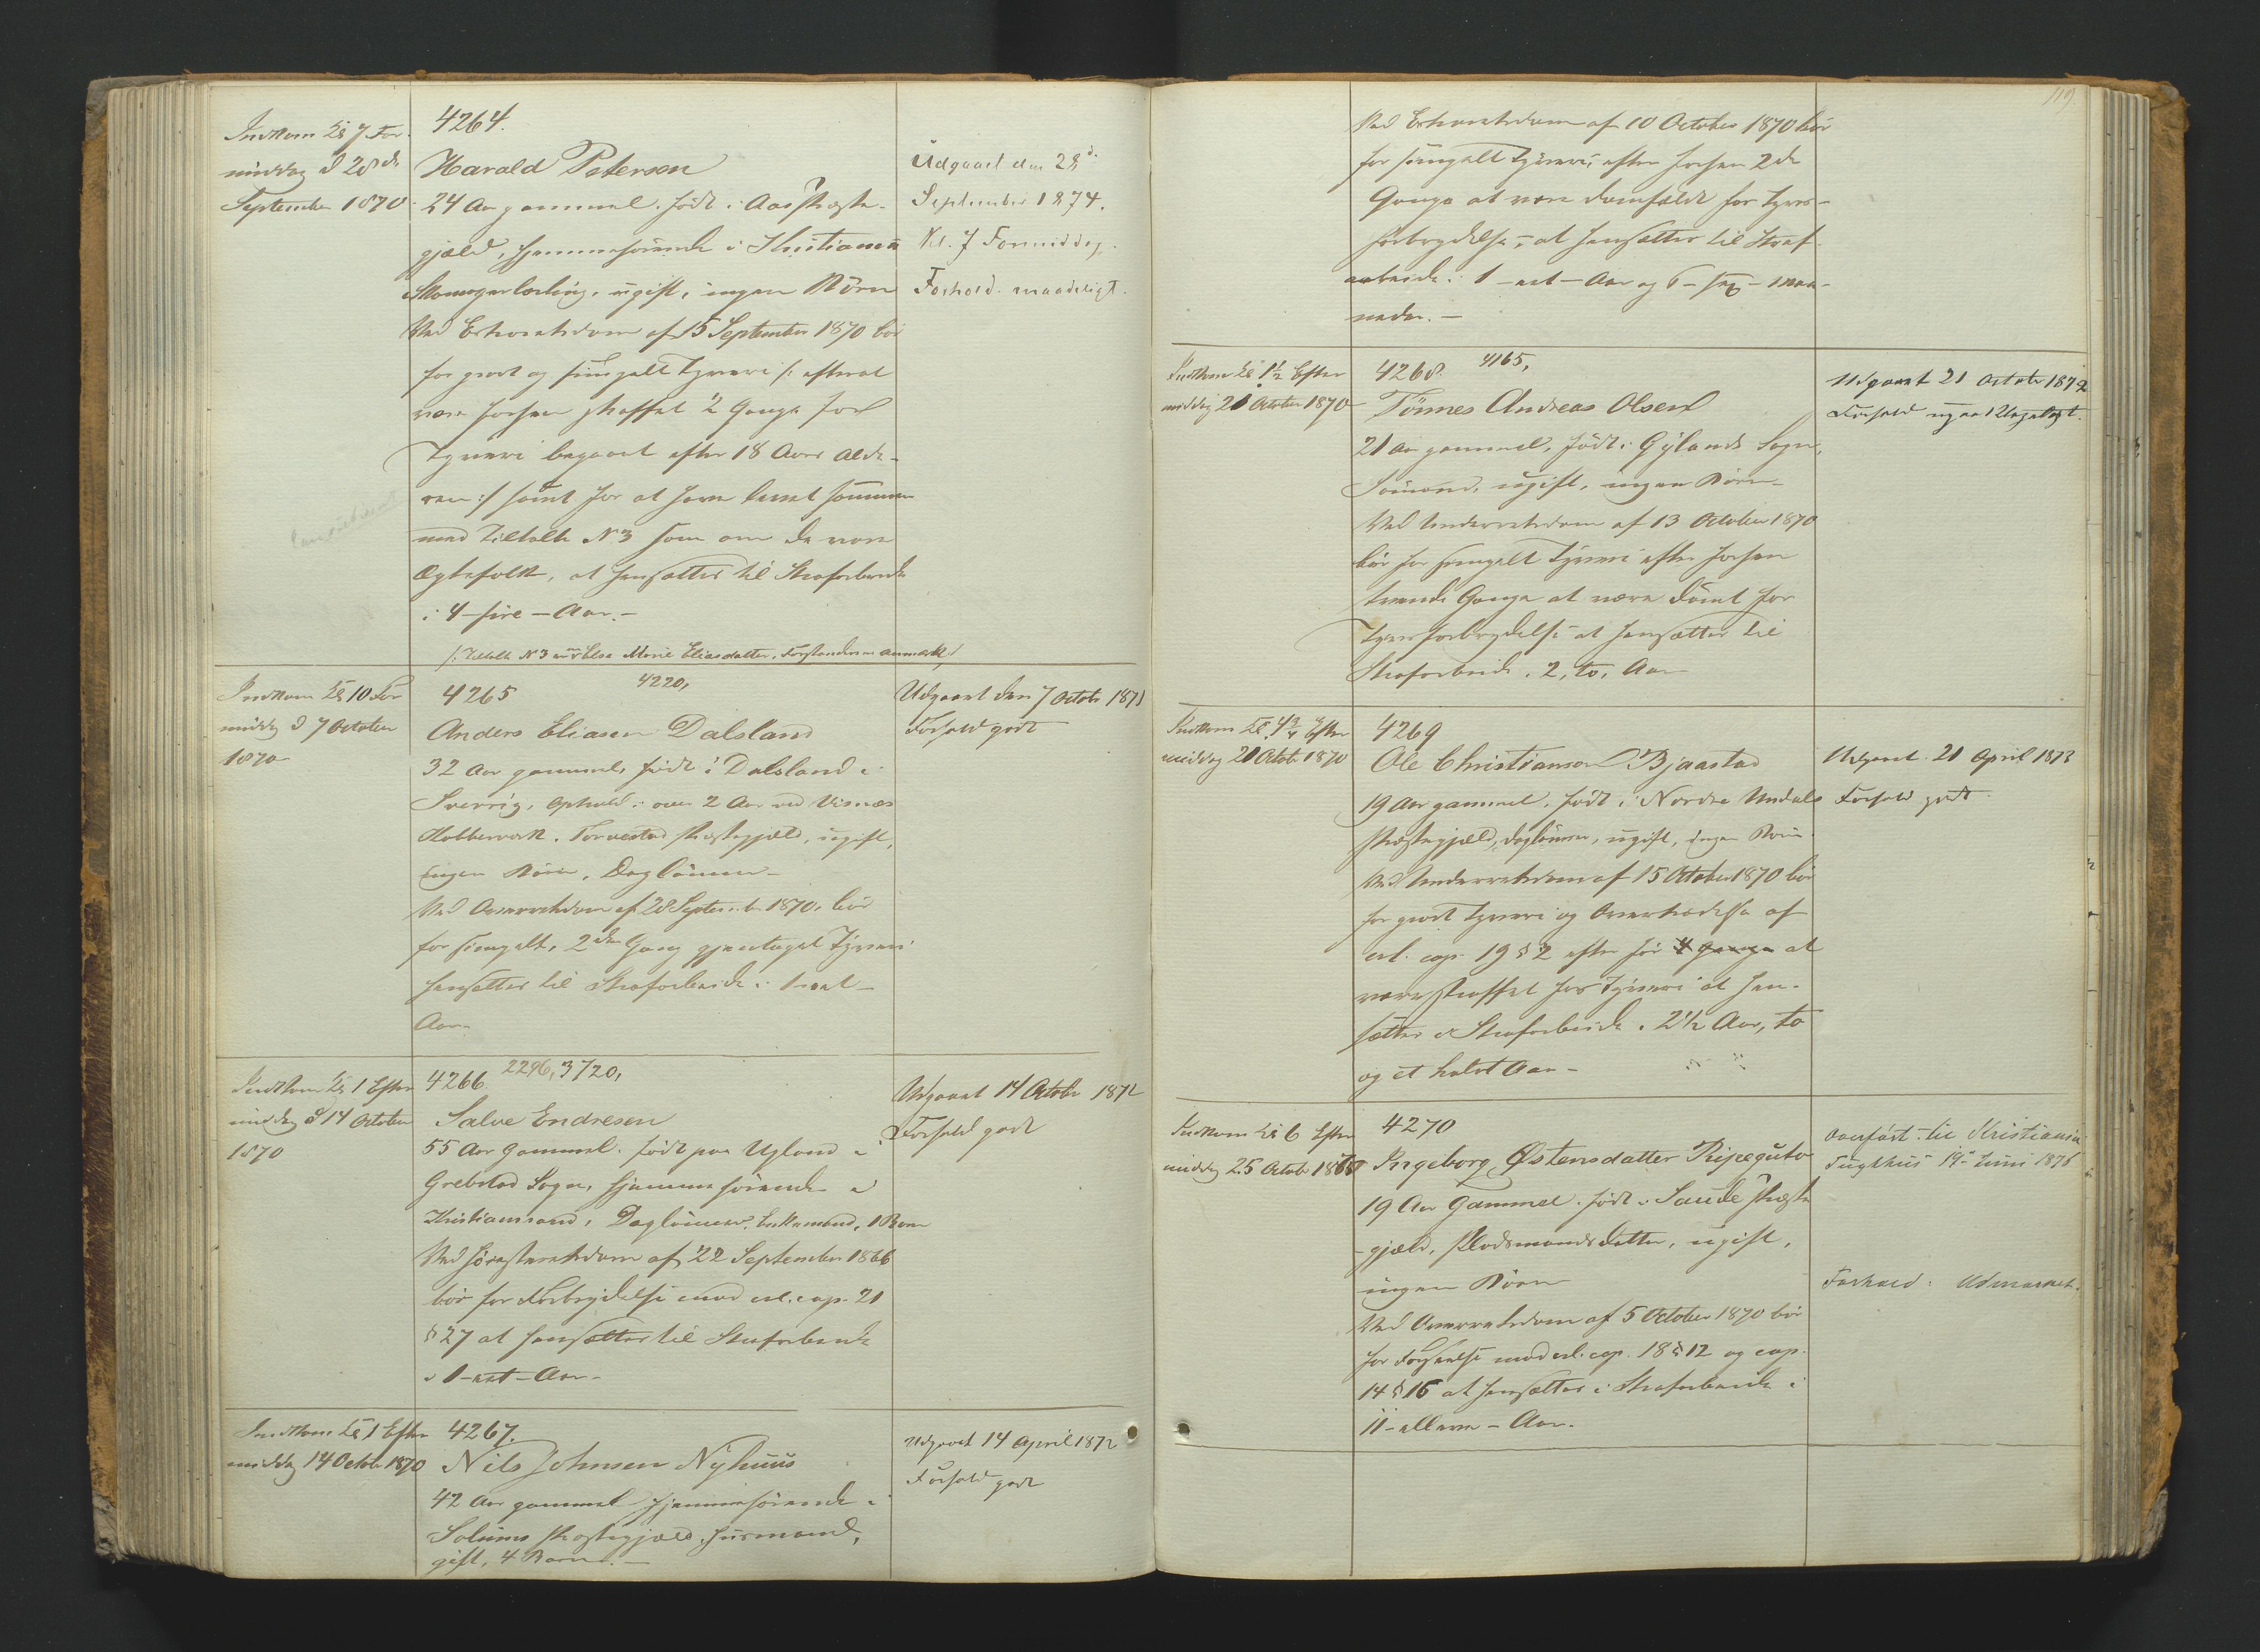 Indkom Kl 7 For-
middag d 28de
September 1870
4264.
Harald Petersen
24 Aar gammel. født i Aas Præste-
gjæld, hjemmehørende i Kristiania
Skomagerlærling, ugift, ingen Børn
Ved Extraretsdom af 15 September 1870 bør
for grovt og simpelt Tyveri /: efterat
være forhen straffet 2 Gange for
Tyveri begaaet efter 18 Aars Alde-
ren :/ samt for at have levet sammen
med Tiltalte No 3 som om de vare
Ægtefolk, at hensættes til Strafarbeide
i 4 - fire - Aar. -
/: Tiltalte No 3 Else Marie Eliasdatter, Forstanderen anmærk /
Udgaaet den 28d
September 1874.
Kl. 7 Formiddag.
Forhold maadeligt.
Indkom Kl 10 For
middag d 7 October
1870
4265 4220,
Anders Eliasen Dalsland
32 Aar gammel, født i Dalsland i
Sverrig, ophold i over 2 Aar ved Visnæs
Kobberværk. Torvestad Præstegjæld, ugift,
ingen Børn, Dagl­ønner -
Ved Overretsdom af 28 September 1870, bør
for simpelt, 2den Gang gjentaget Tyveri
hensættes til Strafarbeide i 1 - eet -
Aar.
Udgaaet den 7 Octobr 1871
Forhold godt
Indkom Kl 1 Efter
middag d 14 October
1870
4266. 2296, 3720,
Salve Endresen
55 Aar gammel. født paa Ugland i
Grebstad Sogn, hjemmehørende i
Kristianssand, Dagl­ønner, Enkemand, 1 Barn
Ved Høiesteretsdom af 22 September 1866
bør for Forbrydelse mod crl. cap. 21
§ 27 at hensættes til Strafarbeide
i 1 - eet - Aar -
Udgaaet 14 Octobr 1872
Forhold godt
Indkom Kl 1 Efter
middag 14 Octobr 1870
4267.
Nils Johnsen Nyhuus
42 Aar gammel hjemmehørende i
Solums Præstegjæld. Huusmand,
gift, 4 Børn. -
Udgaaet 14 April 1872
Forhold godt
119.
Ved Extraretsdom af 10 October 1870 bør
for simpelt Tyveri, efter forhen 2de
Gange at være domfældt for Tyvs-
forbrydelse, at hensættes til Straf-
arbeide i 1 - eet - Aar og 6 - sex - Maa-
neder. -
Indkom Kl 1½ Efter
middag 21 October 1870
4268. 4165,
Tönnes Andreas Olsen
21 Aar gammel, født i Gylands Sogn,
Sömand, ugift, ingen Børn -
Ved Underretsdom af 13 October 1870
bør for simpelt Tyveri efter forhen
tvende Gange at være dömt for
Tyvsforbrydelse at hensættes til
Strafarbeide i 2, to, Aar
Udgaaet 21 Octobr 1872
Forhold
Indkom Kl. 4¾ Efter
middag 21 Octobr 1870
4269
Ole Christianson Bjaastad
19 Aar gammel, født i Nordre Undals
Præstegjæld, Dagl­ønner, ugift, ingen Børn
Ved Underretsdom af 15 October 1870 bør
for grovt Tyveri og Overtrædelse af
crl. cap. 19 § 2 efter før 4 Gange at
være straffet for Tyveri at hen-
sættes i Strafarbeide i 2½ Aar, to
og et halvt Aar -
Udgaaet 21 April 1873
Forhold godt
Indkom Kl 6 Efter
middag 25 Octobr 1870
4270
Ingeborg Østensdatter Ripeguto
19 Aar Gammel. født i Saude Præste
gjæld, Pladsmandsdatter, ugift,
ingen Børn
Ved Overretsdom af 5 October 1870 bør
for Forseelse mod crl. cap. 18 § 12 og cap.
14 § 16 at hensættes i Strafarbeide i
11 - elleve - Aar.
Overført til Kristiania
Tugthus 19de Juni 1876
Forhold: Udmærket.